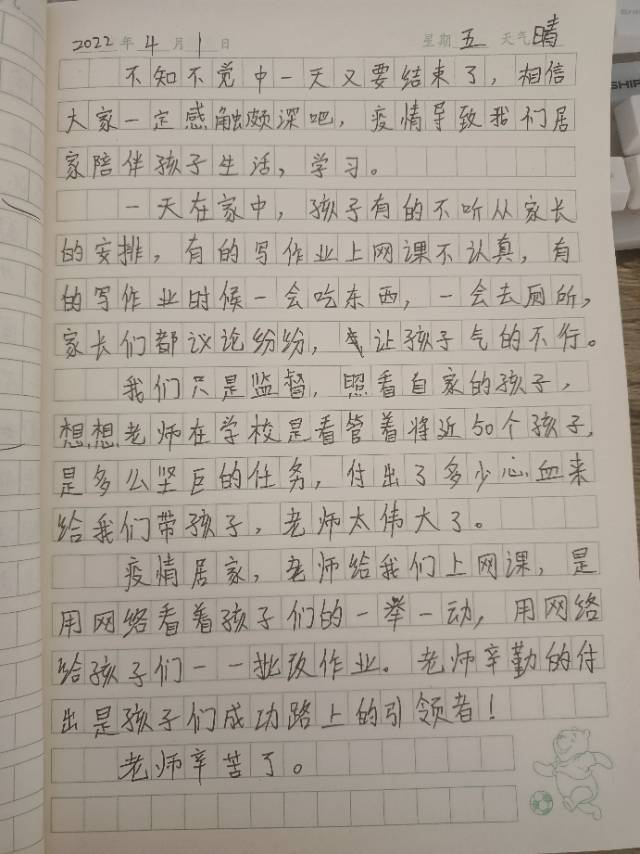 2022年4月1日 星期五 天气晴
不知不觉中一天又要结束了，相信
大家一定感触颇深吧，疫情导致我们居
家陪伴孩子生活，学习。
一天在家中，孩子有的不听从家长
的安排，有的写作业上网课不认真，有
的写作业时候一会吃东西，一会去厕所，
家长们都议论纷纷，让孩子气的不行。
我们只是监督，照看自家的孩子，
想想老师在学校是看管着将近50个孩子，
是多么坚巨的任务，付出了多少心血来
给我们带孩子，老师太伟大了。
疫情居家，老师给我们上网课，是
用网络看着孩子们的一举一动，用网络
给孩子们一一批改作业。老师辛勤的付
出是孩子们成功路上的引领者！
老师辛苦了。